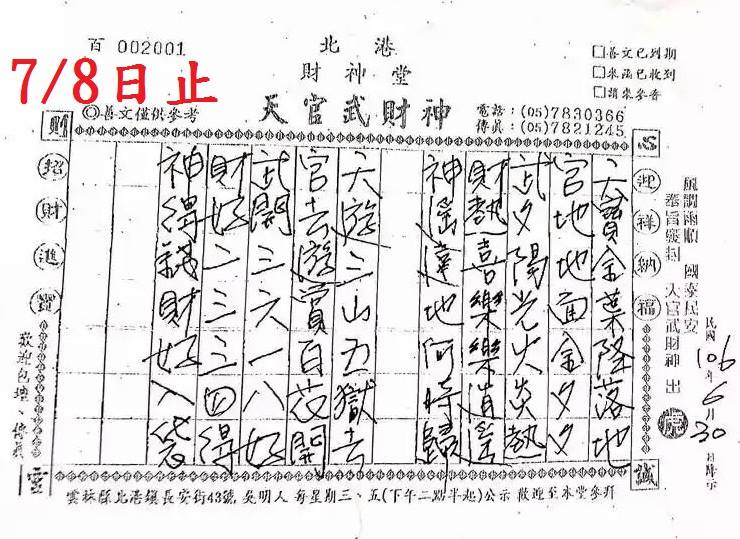 百 002001
7/8日止
北港
財神堂
◎善文僅供參考
天官武財神
□善文已到期
□來函已收到
□請來參香
電話:(05)7830366
傳真:(05)7821245
風調雨順 國泰民安
奉旨敕封 天官武財神 出
民國106年6月30日降示
心
迎祥納福
誠
天寶金葉降落地
官地地面金夕夕
武夕陽光火炎熱
財熱喜樂樂逍遙
神遙遠地何時歸
天遊三山五獄去
官去遊賞百花開
武開三六一八好
財好二三三四得
神得錢財好入袋
財
招財進寶
靈
歡迎包壇、傳真
雲林縣北港鎮長安街43號 吳明人 每星期三、五(下午二點半起)公示 歡迎至本堂參拜